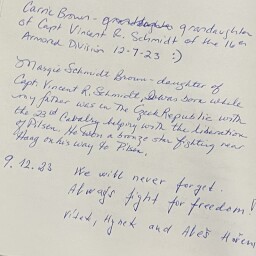 Carrie Brown - granddaughter
of Capt Vincent R. Schmidt of the 16th
Armored Division 12-9-23 :)
Margie Schmidt Brown - daughter of
Capt. Vincent R. Schmidt, I was born while
my father was in the Czech Republic with
the 23rd Cavalry helping with the liberation
of Pilsen. He won a bronze star fighting near
Haag on his way to Pilsen.
9. 12. 23 We will never forget.
Always fight for freedom!
Vítek, Hynek and Aleš